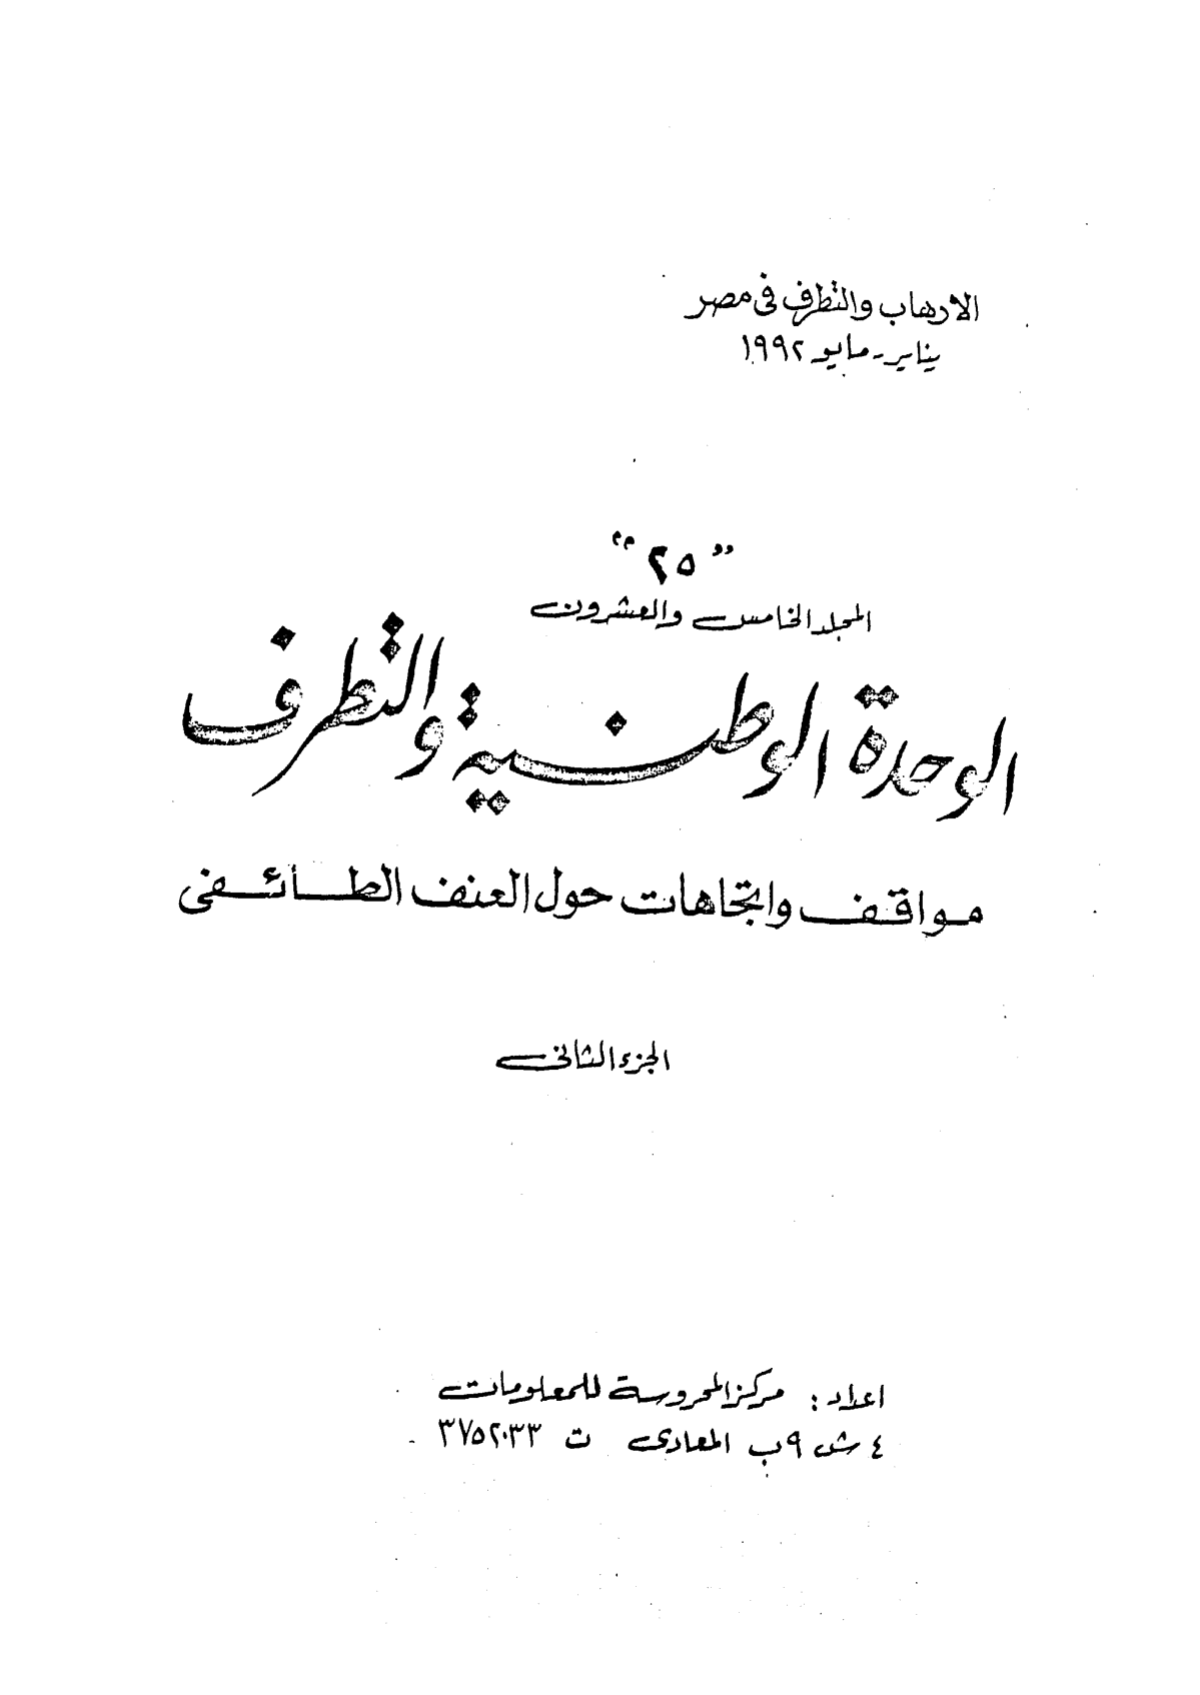 الارهاب والتطرف فى مصر
يناير - مايو ١٩٩٢
"٢٥"
المجلد الخامس والعشرون
الوحدة الوطنية والتطرف
مواقف واتجاهات حول العنف الطائفى
الجزء الثانى
اعداد : مركز المحروسة للمعلومات
٤ ش ٩ب المعادى ت ٣٧٥٢٠٣٣